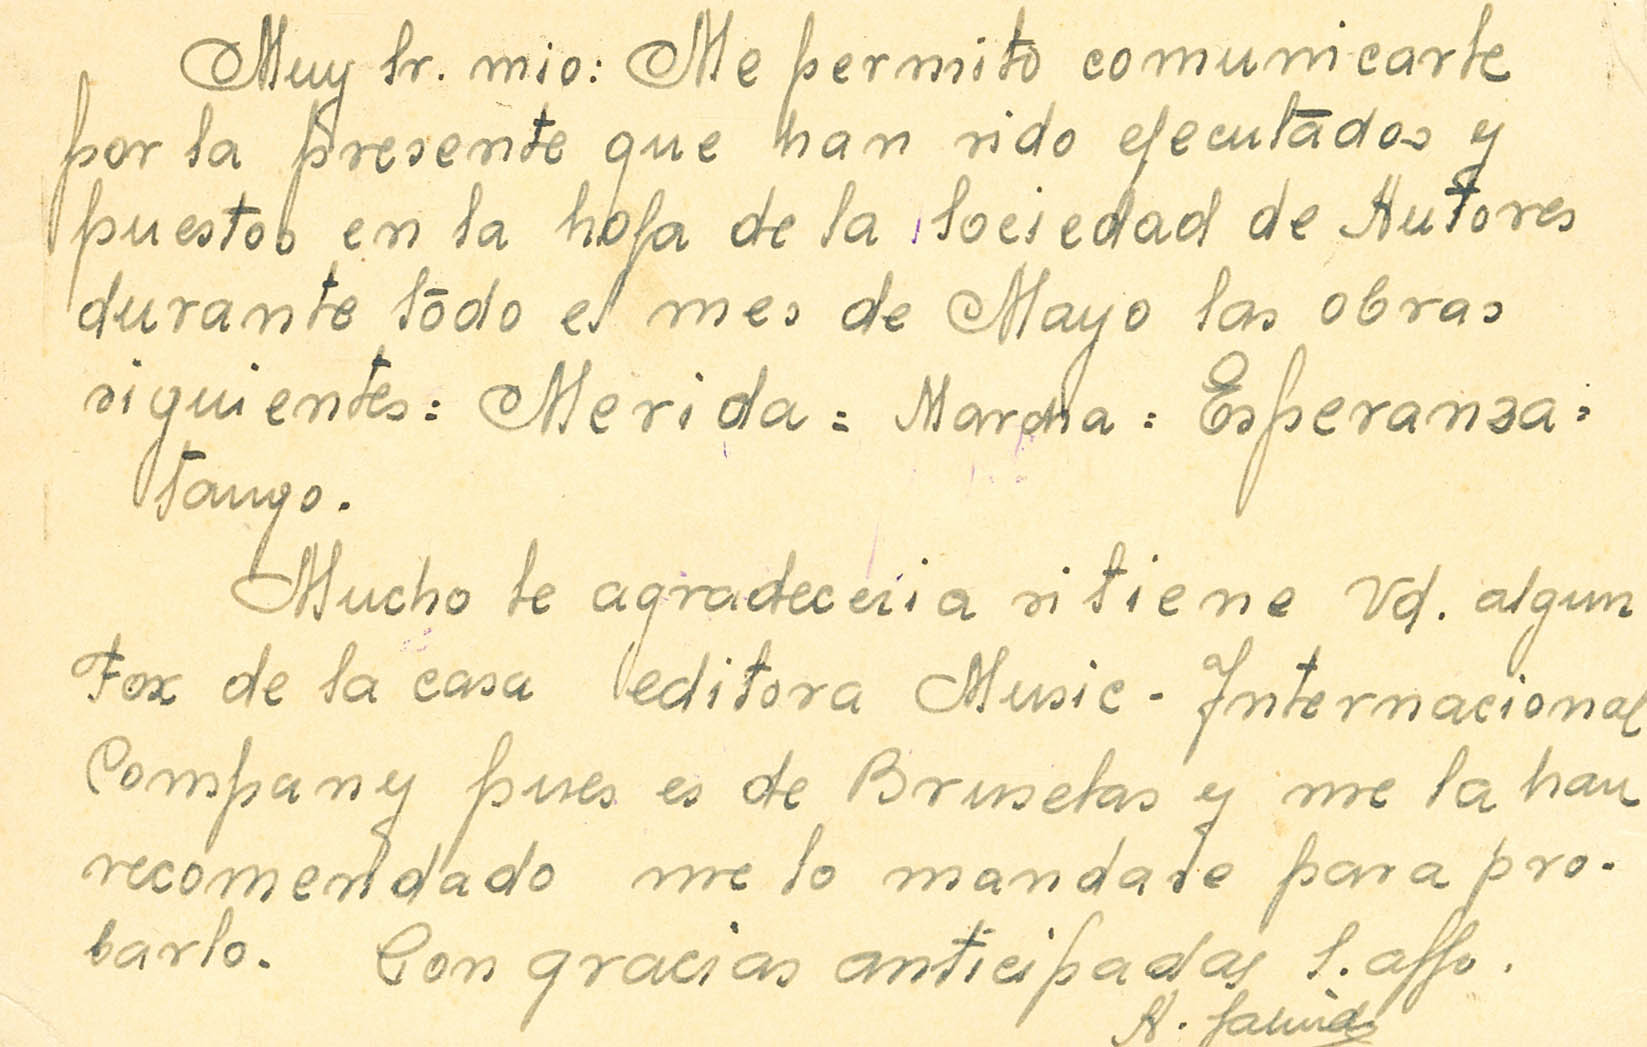 Muy Sr. mio: Me permito comunicarle
por la presente que han sido ejecutados y
puestos en la hoja de la Sociedad de Autores
durante todo el mes de Mayo las obras
siguientes: Merida = Marcha = Esperanza =
tango.
Mucho le agradeceria si tiene Vd. algun
Fox de la casa editora Music - Internacional
Company pues es de Bruselas y me la han
recomendado me lo mandase para pro-
barlo. Con gracias anticipadas S. affo.
A.